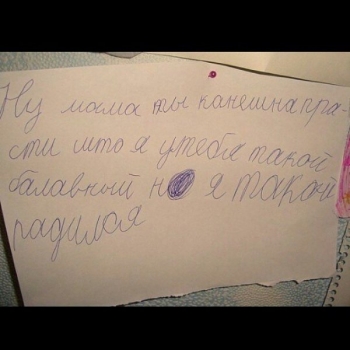 Ну мама ты канешна пра-
сти што я у тебя такой
балавный но я такой
радился